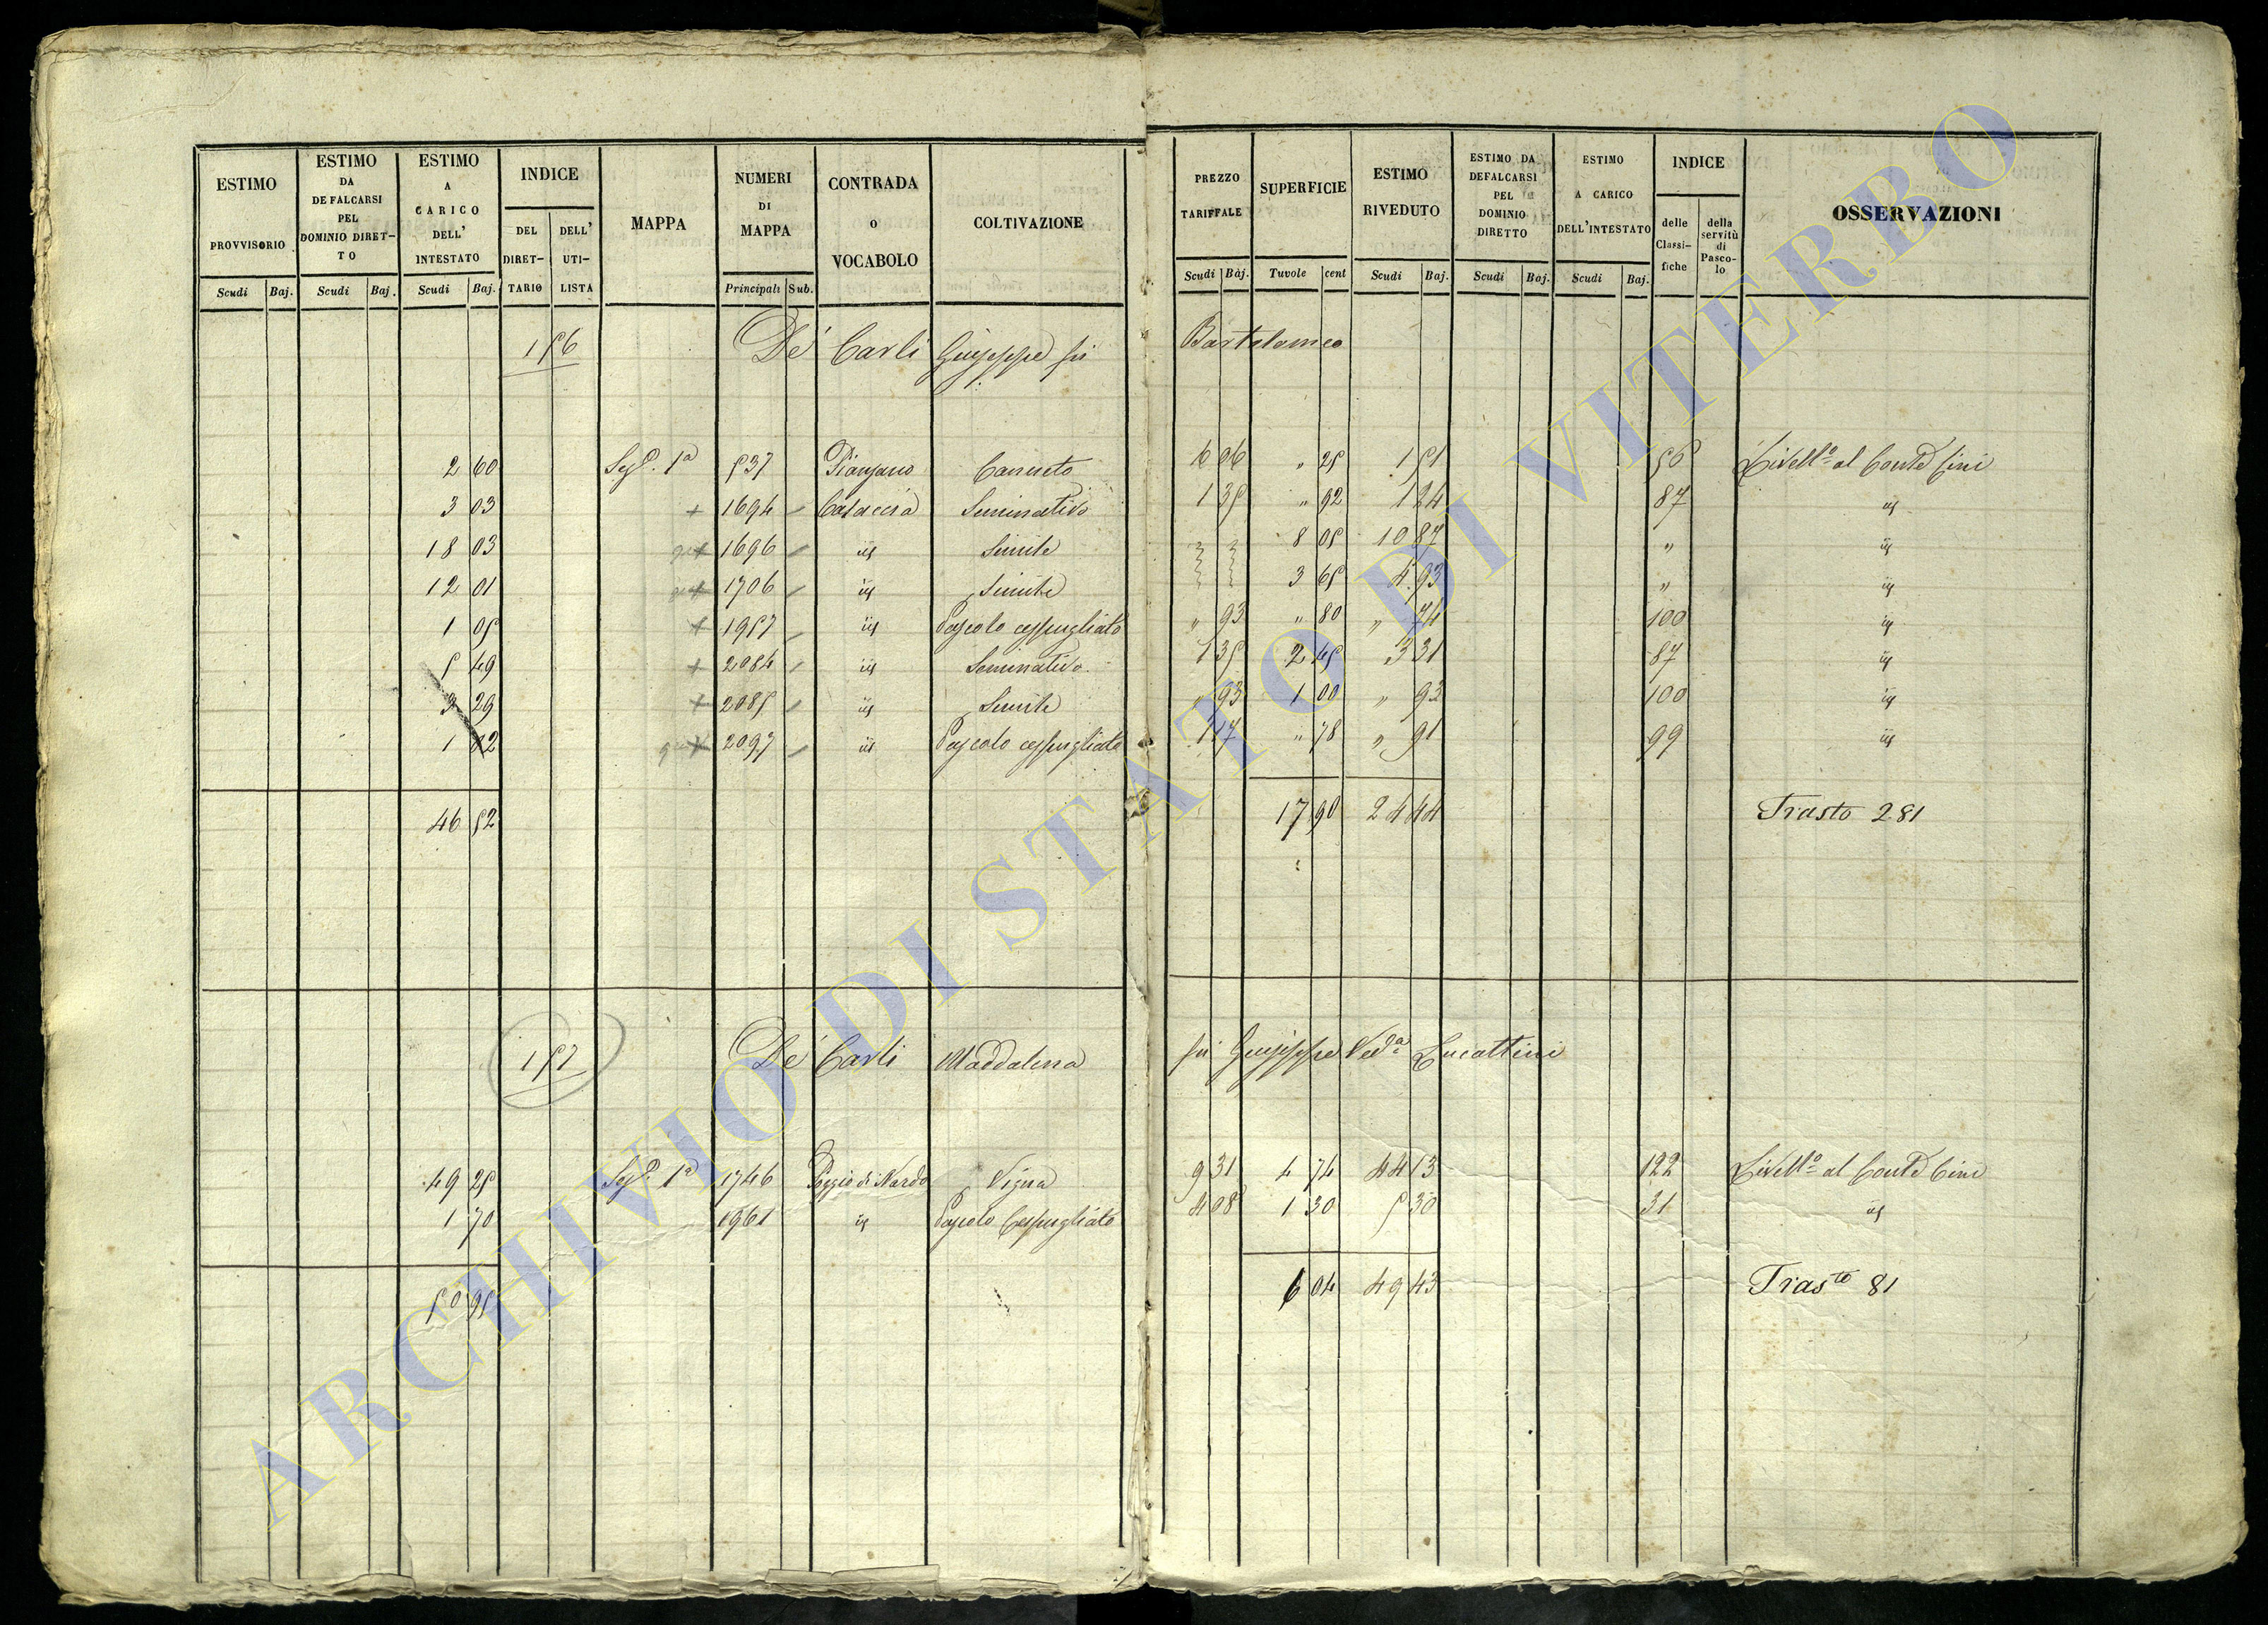 ESTIMO PROVVISORIO | ESTIMO DA DEFALCARSI PEL DOMINIO DIRETTO | ESTIMO A CARICO DELL' INTESTATO | INDICE DEL DIRETTARIO | DELL' UTILISTA | MAPPA | NUMERI DI MAPPA | CONTRADA O VOCABOLO | COLTIVAZIONE | PREZZO TARIFFALE | SUPERFICIE | ESTIMO RIVEDUTO | ESTIMO DA DEFALCARSI PEL DOMINIO DIRETTO | ESTIMO A CARICO DELL'INTESTATO | INDICE delle Classifiche | della servitù di Pascolo | OSSERVAZIONI
Scudi Baj. Scudi Baj. Scudi Baj. Principali Sub. Scudi Baj. Tavole cent Scudi Baj. Scudi Baj. Scudi Baj.
156 Dé Carli Giuseppe fu Bartolomeo
2 60 Sez. 1a 537 Pianzano Canneto 6 06 " 25 1 51 56 Livello al Conte Cini
3 03 + 1694 Casaccia Seminativo 1 35 " 92 1 24 87 iis
18 03 1696 iis Simile 8 05 10 87 " iis
12 01 1706 iis Simile 3 65 4 93 " iis
1 05 + 1957 iis Pascolo cespugliato " 93 " 80 " 74 100 iis
5 49 + 2084 iis Seminativo 1 35 2 45 3 31 87 iis
3 29 + 2085 iis Simile " 93 1 00 " 93 100 iis
1 02 2097 iis Pascolo cespugliato 1 17 " 78 " 91 99 iis
46 52 17 90 24 44 Trasto 281
157 Dé Carli Maddalena fu Giuseppe Ved.a Lucattini
49 25 Sez. 1a 1746 Poggio di Nardo Vigna 9 31 4 74 44 13 122 Livello al Conte Cini
1 70 1961 iis Pascolo Cespugliato 4 08 1 30 5 30 31 iis
50 95 6 04 49 43 Trasto 81
ARCHIVIO DI STATO DI VITERBO